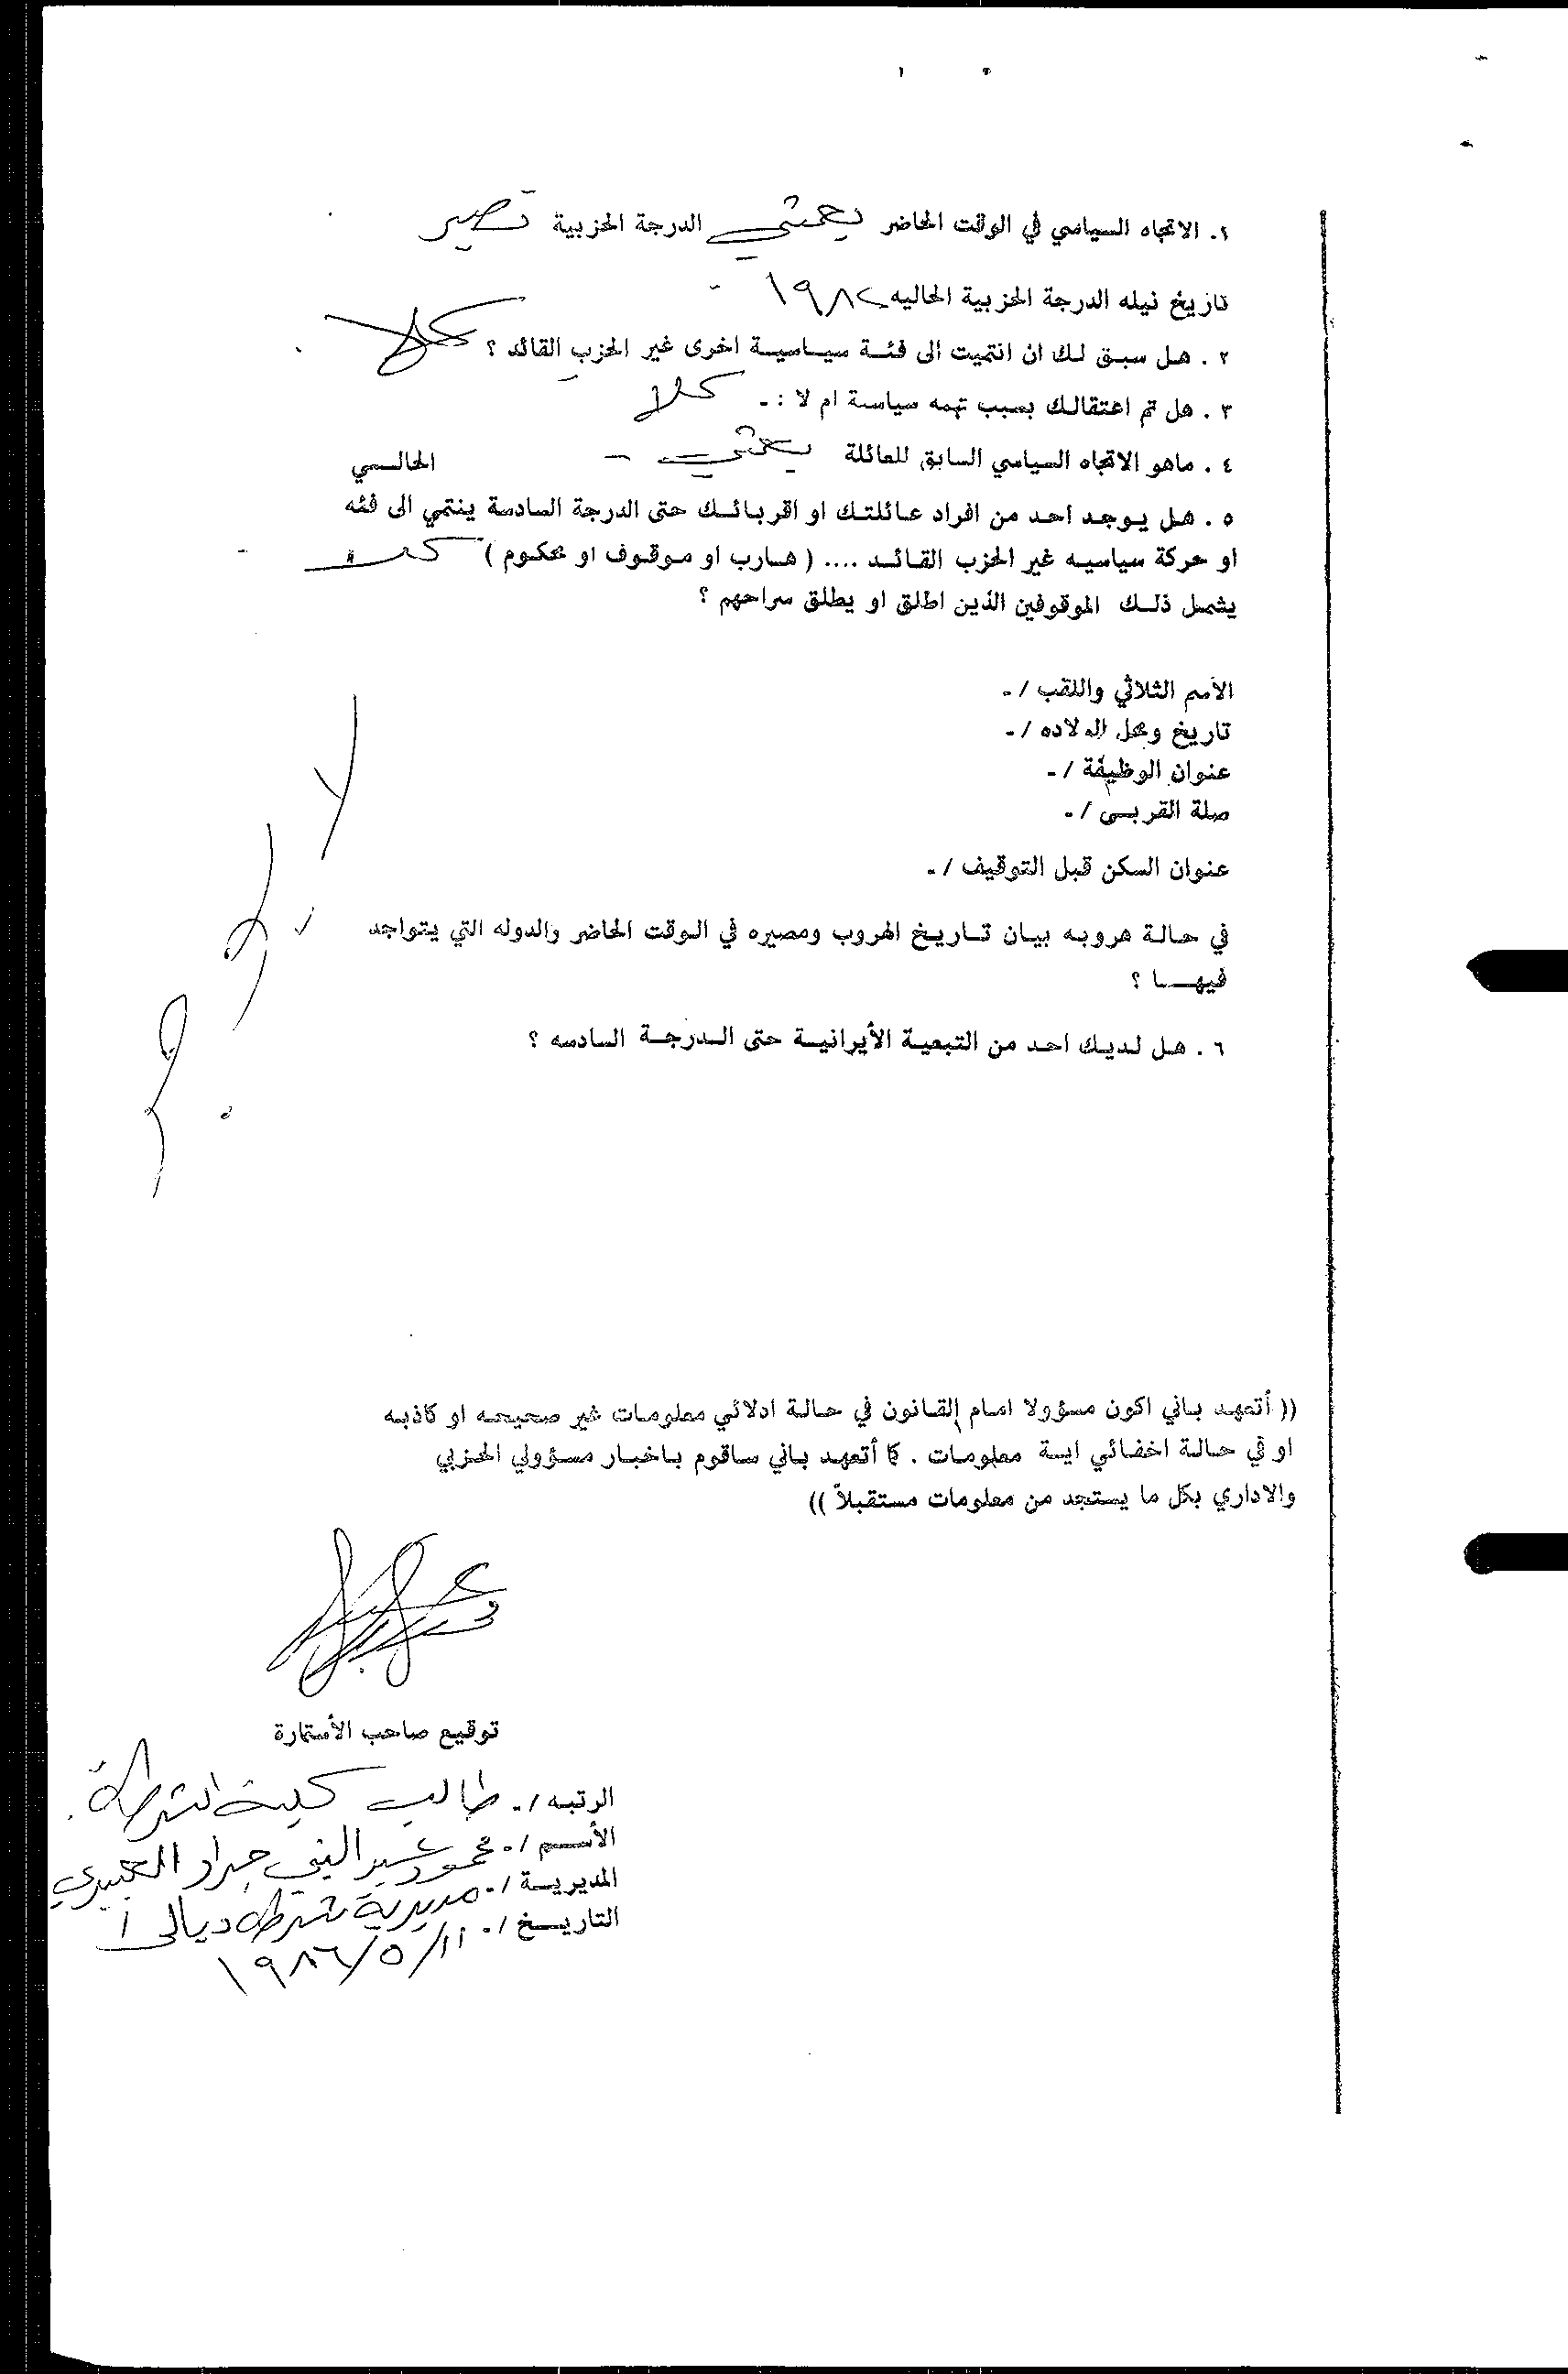 ١. الاتجاه السياسي في الوقت الحاضر بعثي الدرجة الحزبية نصير
تاريخ نيله الدرجة الحزبية الحاليه ١٩٨٢
٢. هل سبق لك ان انتميت الى فئة سياسية اخرى غير الحزب القائد ؟ كلا
٣. هل تم اعتقالك بسبب تهمه سياسة ام لا :ـ كلا
٤. ماهو الاتجاه السياسي السابق للعائلة بعثي الحالي
٥. هل يوجد احد من افراد عائلتك او اقربائك حتى الدرجة السادسة ينتمي الى فئه
او حركة سياسيه غير الحزب القائد .... ( هارب او موقوف او محكوم )
يشمل ذلك الموقوفين الذين اطلق او يطلق سراحهم ؟
الأسم الثلاثي واللقب /ـ
تاريخ ومحل الولاده /ـ
عنوان الوظيفة /ـ
صلة القربى /ـ
عنوان السكن قبل التوقيف /ـ
في حالة هروبه بيان تاريخ الهروب ومصيره في الوقت الحاضر والدوله التي يتواجد
فيها ؟
٦. هل لديك احد من التبعية الأيرانية حتى الدرجة السادسه ؟
(( أتعهد باني اكون مسؤولا امام القانون في حالة ادلائي معلومات غير صحيحه او كاذبه
او في حالة اخفائي اية معلومات . كما أتعهد باني ساقوم باخبار مسؤولي الحزبي
والاداري بكل ما يستجد من معلومات مستقبلاً ))
توقيع صاحب الأستمارة
الرتبه /ـ طالب كلية الشرطة
الأسم /ـ محمود عبد النبي جراد العبيدي
المديرية /ـ مديرية شرطة ديالى
التاريخ /ـ ١١/٥/١٩٨٦